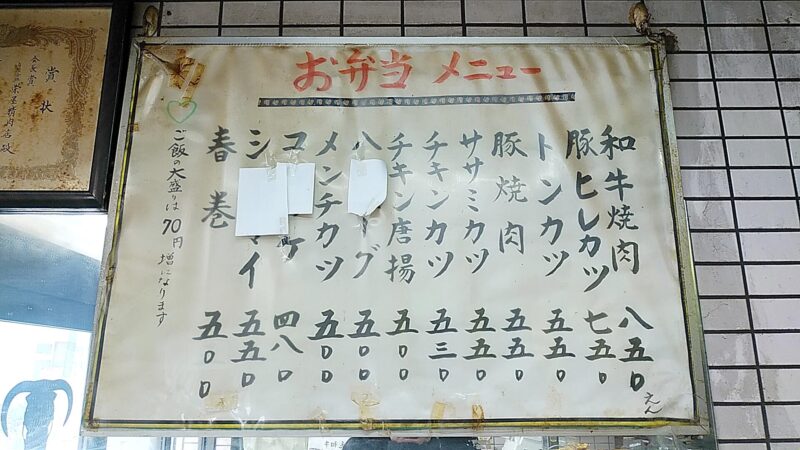 お弁当メニュー
和牛焼肉 八五〇えん
豚ヒレカツ 七五〇
トンカツ 五五〇
豚焼肉 五五〇
ササミカツ 五五〇
チキンカツ 五三〇
チキン唐揚 五〇〇
ハ グ 五〇〇
メンチカツ 五〇〇
コ ケ 四八〇
シ マイ 五五〇
春巻 五〇〇
ご飯の大盛りは70円増になります
賞状
会長賞
精肉店殿